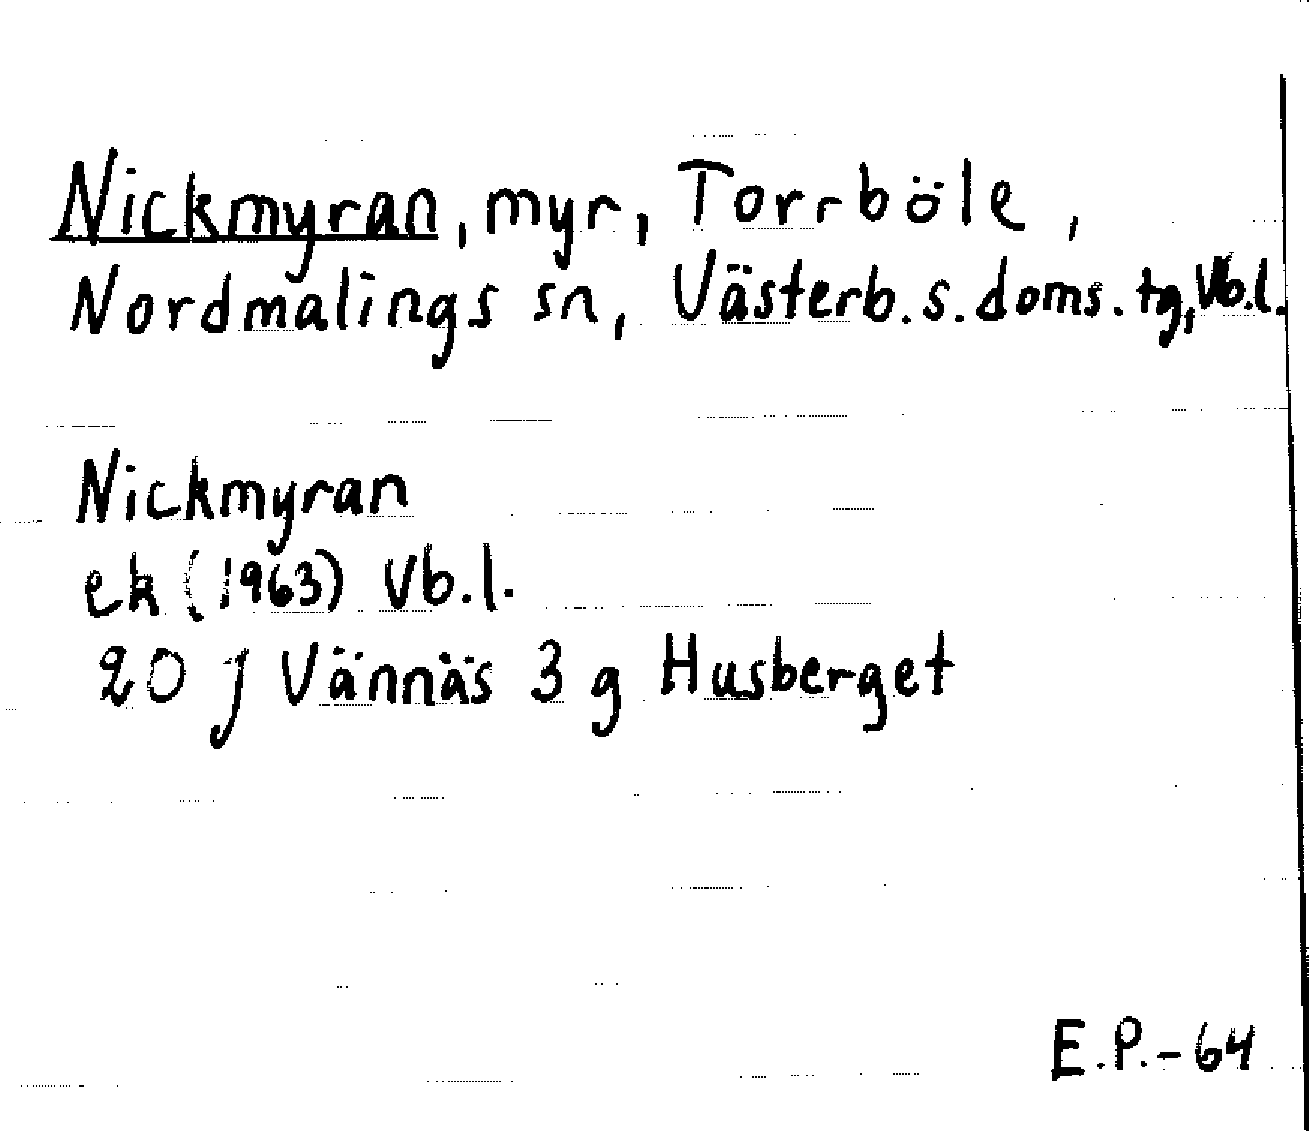 Nickmyran, myr, Torrböle,
Nordmalings sn, Västerb. s. doms. tg, Vb.l.
Nickmyran
ek (1963) Vb.l.
20 J Vännäs 3 g Husberget
E.P.-64